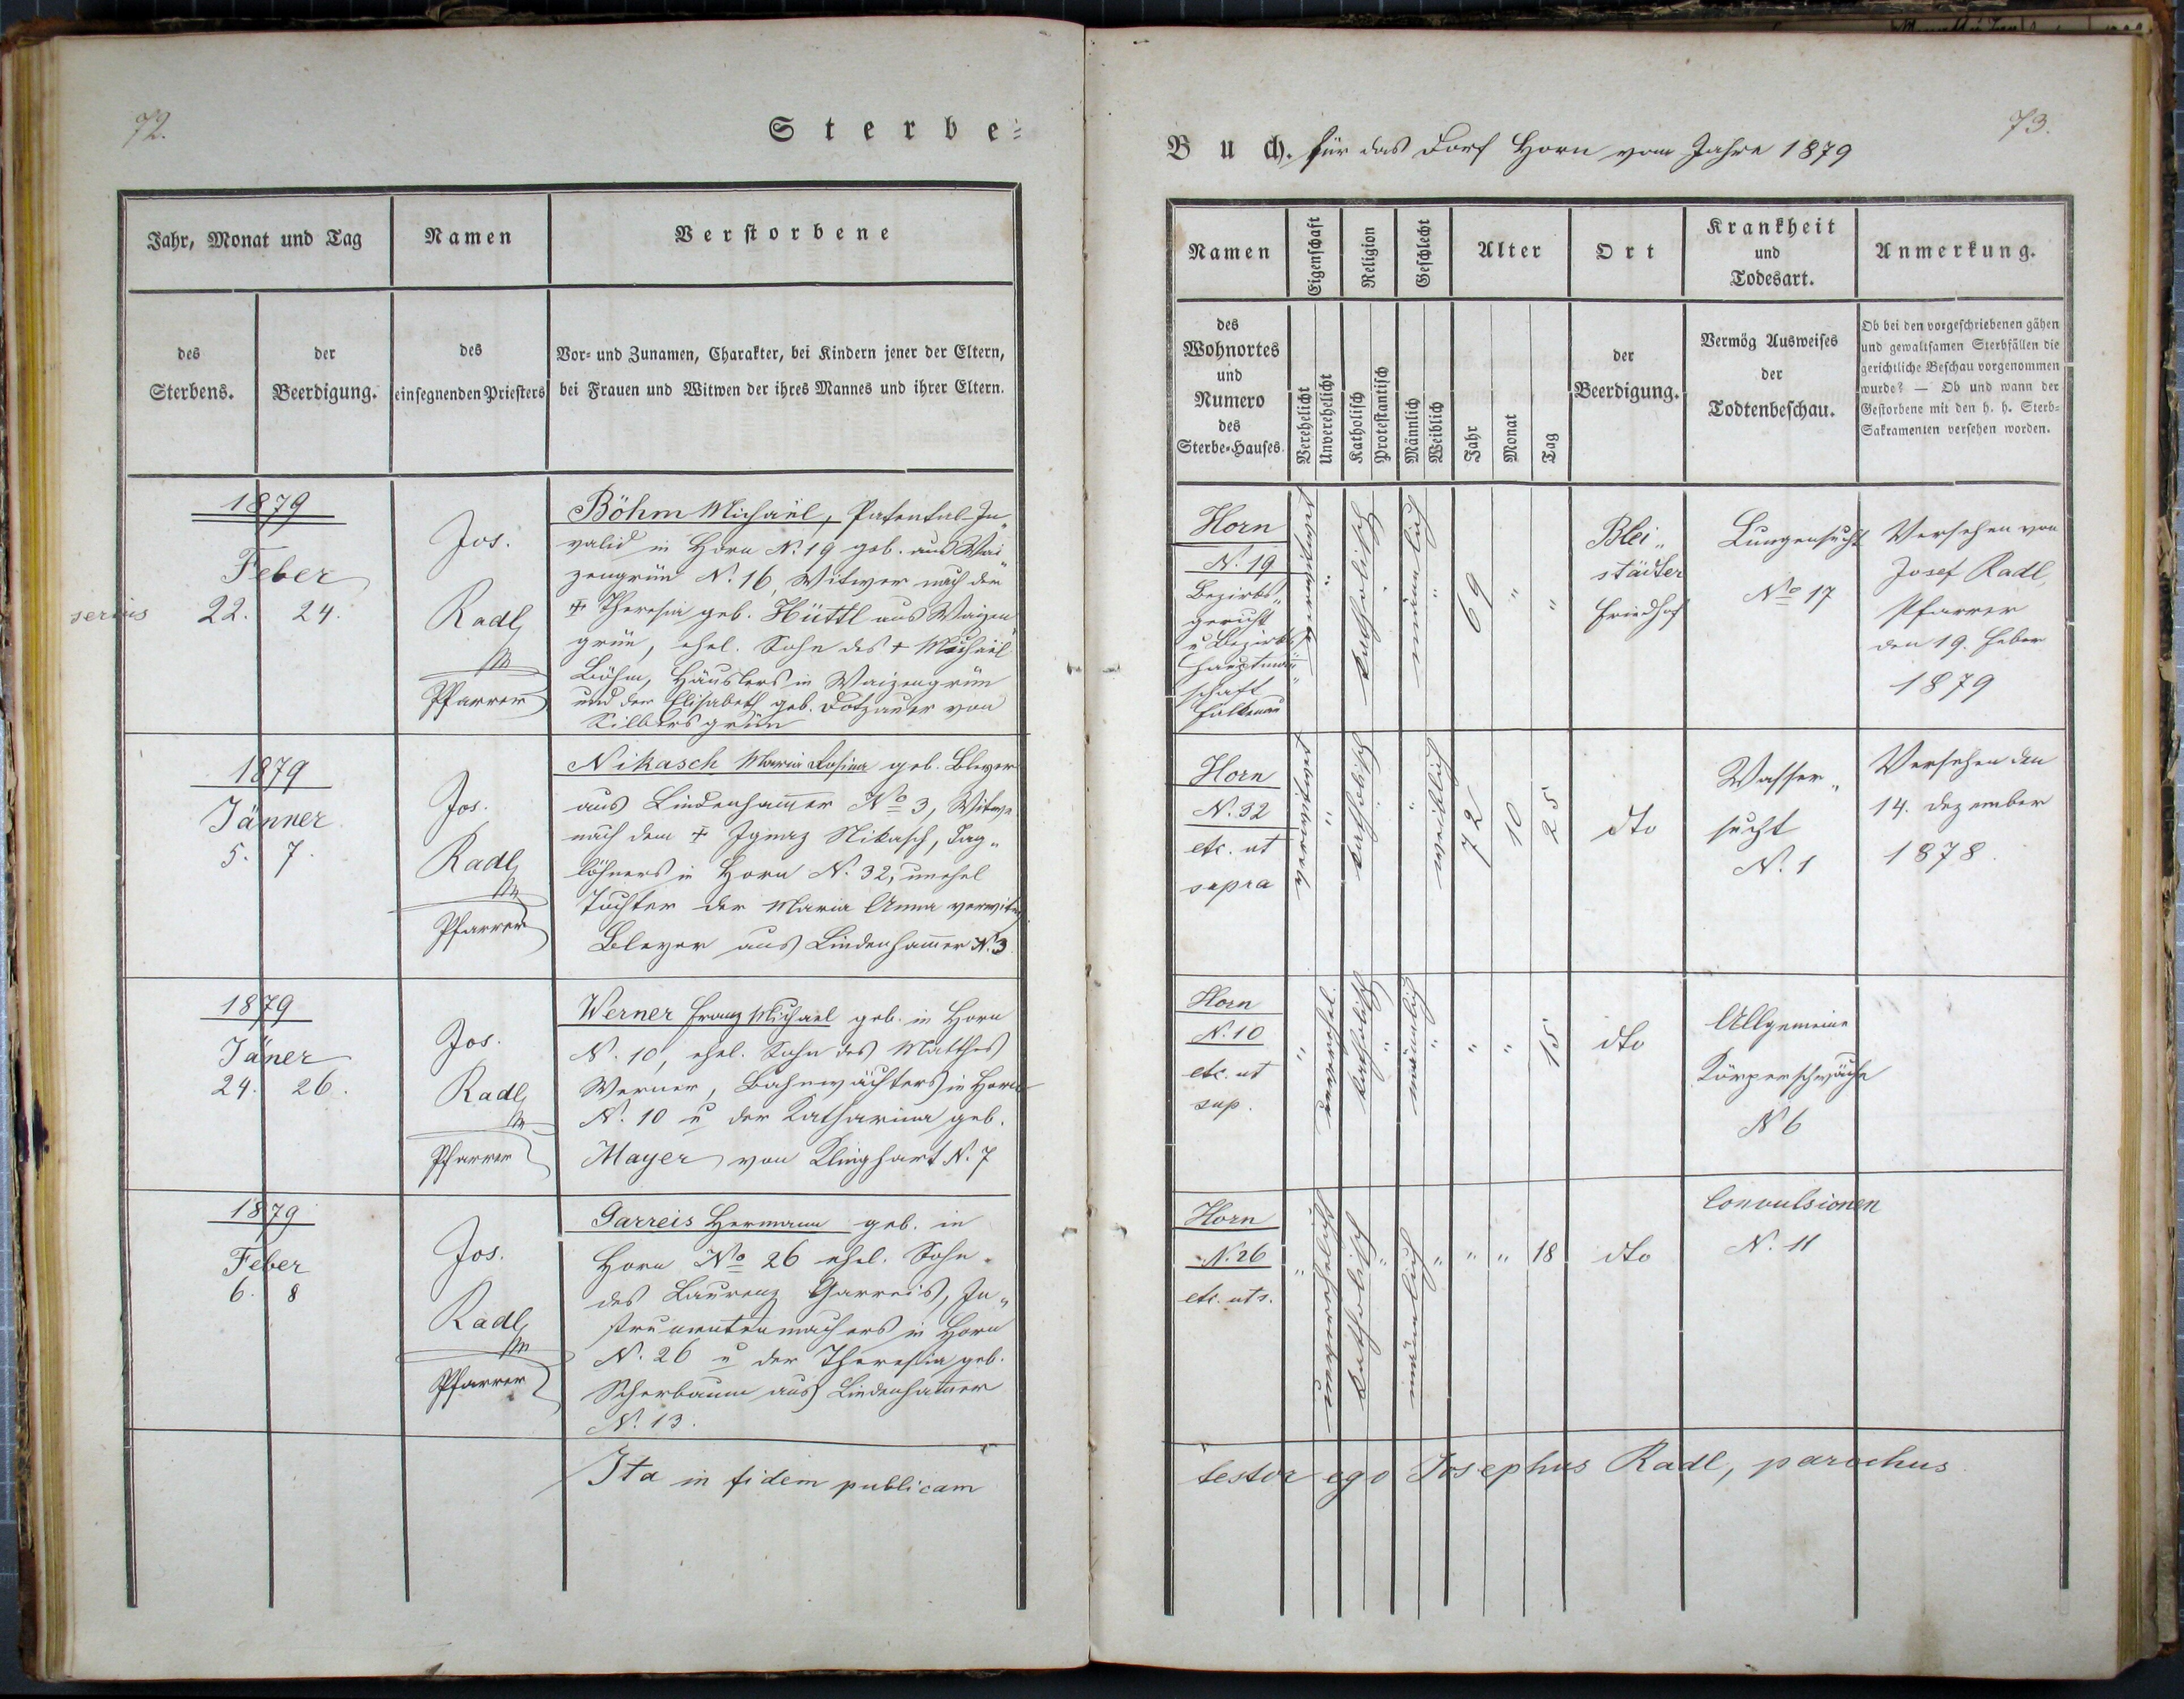 72.
Sterbe=
Jahr, Monat und Tag
Namen
Verstorbene
des
Sterbens.
der
Beerdigung.
des
einsegnenden Priesters
Vor- und Zunamen, Charakter, bei Kindern jener der Eltern,
bei Frauen und Witwen der ihres Mannes und ihrer Eltern.
serius
1879
Feber
22. 24.
Jos.
Radl
Pfarrer
Böhm Michael, Patental-In„
valid in Horn N. 19 geb. aus Wai„
zengrün N. 16, Witwer nach der
† Theresia geb. Hüttl aus Waizen„
grün, ehel. Sohn des † Michael
Böhm, Häuslers in Waizengrün
und der Elisabeth geb. Dotzauer von
Silbersgrün
1879
Jänner
5. 7.
Jos.
Radl
Pfarrer
Nikasch Maria Rosina geb. Bleyer
aus Lindenham̅er No 3, Witwe
nach dem † Ignaz Nikasch, Tag„
löhners in Horn N. 32, unehel
Tochter der Maria Anna verwitw
Bleyer aus Lindenham̅er N. 3
1879
Jän̅er
24. 26.
Jos.
Radl
Pfarrer
Werner Franz Michael geb. in Horn
N. 10, ehel. Sohn des Matthes
Werner, Bahnwächters in Horn
N. 10 u der Katharina geb.
Mayer von Klinghart N. 7
1879
Feber
6. 8
Jos.
Radl
Pfarrer
Garreis Hermann geb. in
Horn No 26 ehel. Sohn
des Laurenz Garreis, In„
strumentenmachers in Horn
N. 26 u der Theresia geb.
Scherbaum aus Lindenham̅er
N. 13.
Ita in fidem publicam
73.
Buch. für das Dorf Horn vom Jahre 1879
Namen
Eigenschaft
Religion
Geschlecht
Alter
Ort
Krankheit
und
Todesart.
Anmerkung.
des
Wohnortes
und
Numero
des
Sterbe-Hauses.
Verehelicht
Unverehelicht
Katholisch
Protestantisch
Männlich
Weiblich
Jahr
Monat
Tag
der
Beerdigung.
Vermög Ausweises
der
Todtenbeschau.
Ob bei den vorgeschriebenen gähen
und gewaltsamen Sterbfällen die
gerichtliche Beschau vorgenommen
wurde? — Ob und wann der
Gestorbene mit den h. h. Sterb-
Sakramenten versehen worden.
Horn
N. 19
Bezirks„
gericht
u Bezirks„
hauptman̅„
schaft
Falkenau
verwitwet
"
katholisch
"
männlich
"
69
"
"
Blei„
städter
Friedhof
Lungensucht
No 17
Versehen von
Josef Radl,
Pfarrer
den 19. Feber
1879
Horn
N. 32
etc. ut
supra
verwitwet
"
katholisch
"
weiblich
72
10
25
dto
Wasser„
sucht
N. 1
Versehen den
14. Dezember
1878.
Horn
N. 10
etc. ut
sup.
"
unverehel.
katholisch
"
männlich
"
"
"
15
dto
Allgemeine
Körperschwäche
N 6
Horn
N. 26
etc. ut s.
"
unverehelicht
katholisch
"
männlich
"
"
"
18
dto
Convulsionen
N. 11
testor ego Josephus Radl, parochus